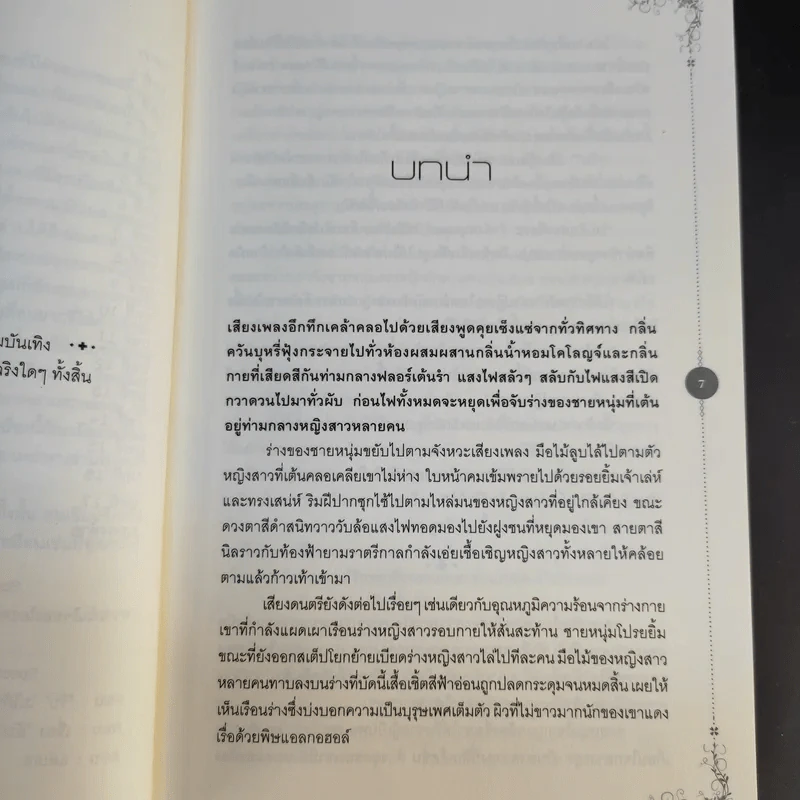 บันเทิง
จริงใดๆ ทั้งสิ้น
บทนำ
เสียงเพลงอึกทึกเคล้าคลอไปด้วยเสียงพูดคุยเซ็งแซ่จากทั่วทิศทาง กลิ่น
ควันบุหรี่ฟุ้งกระจายไปทั่วห้องผสมผสานกลิ่นน้ำหอมโคโลญจ์และกลิ่น
กายที่เสียดสีกันท่ามกลางฟลอร์เต้นรำ แสงไฟสลัวๆ สลับกับไฟแสงสีเปิด
กวาดวนไปมาทั่วผับ ก่อนไฟทั้งหมดจะหยุดเพื่อจับร่างของชายหนุ่มที่เต้น
อยู่ท่ามกลางหญิงสาวหลายคน
ร่างของชายหนุ่มขยับไปตามจังหวะเสียงเพลง มือไม้ลูบไล้ไปตามตัว
หญิงสาวที่เต้นคลอเคลียเขาไม่ห่าง ใบหน้าคมเข้มพรายไปด้วยรอยยิ้มเจ้าเล่ห์
และทรงเสน่ห์ ริมฝีปากซุกไซ้ไปตามไหล่มนของหญิงสาวที่อยู่ใกล้เคียง ขณะ
ดวงตาสีดำสนิทวาววับล้อแสงไฟทอดมองไปยังฝูงชนที่หยุดมองเขา สายตาสี
นิลราวกับท้องฟ้ายามราตรีกาลกำลังเอ่ยเชื้อเชิญหญิงสาวทั้งหลายให้คล้อย
ตามแล้วก้าวเท้าเข้ามา
เสียงดนตรียังดังต่อไปเรื่อยๆ เช่นเดียวกับอุณหภูมิความร้อนจากร่างกาย
เขาที่กำลังแผดเผาเรือนร่างหญิงสาวรอบกายให้สั่นสะท้าน ชายหนุ่มโปรยยิ้ม
ขณะที่ยังออกสเต็ปโยกย้ายเบียดร่างหญิงสาวไล่ไปทีละคน มือไม้ของหญิงสาว
หลายคนทาบลงบนร่างที่บัดนี้เสื้อเชิ้ตสีฟ้าอ่อนถูกปลดกระดุมจนหมดสิ้น เผยให้
เห็นเรือนร่างซึ่งบ่งบอกความเป็นบุรุษเพศเต็มตัว ผิวที่ไม่ขาวมากนักของเขาแดง
เรื่อด้วยพิษแอลกอฮอล์
7